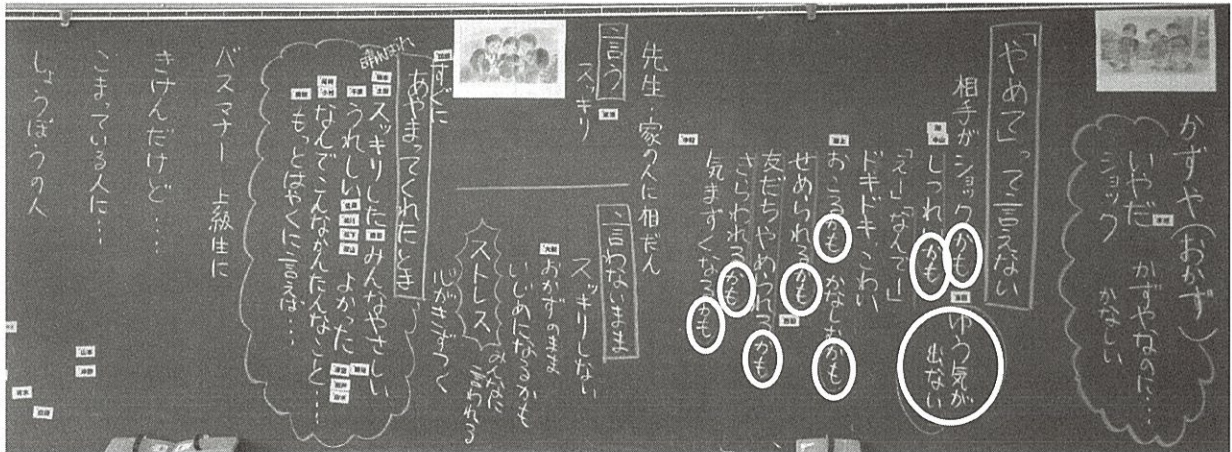 かずや(おかず)
いやだ かずやなのに…
ショック かなしい
「やめて」って言えない
相手がショックかも
しつれいかも ゆう気が出ない
「えー」「なんでー」
ドキドキ・こわい
おこるかも かなしむかも
せめられるかも
友だちやめられるかも
きらわれるかも
気まずくなるかも
先生・家の人に相だん
言う
スッキリ
言わないまま
スッキリしない
おかずのまま
いじめになるかも
ストレス みんなに言われる
心がきずつく
すぐに
あやまってくれたとき
晴ればれ
スッキリした みんなやさしい
うれしい よかった
なんでこんなかんたんなこと…
もっとはやくに言えば…
バスマナー 上級生に
きけんだけど…
こまっている人に…
しょうぼうの人